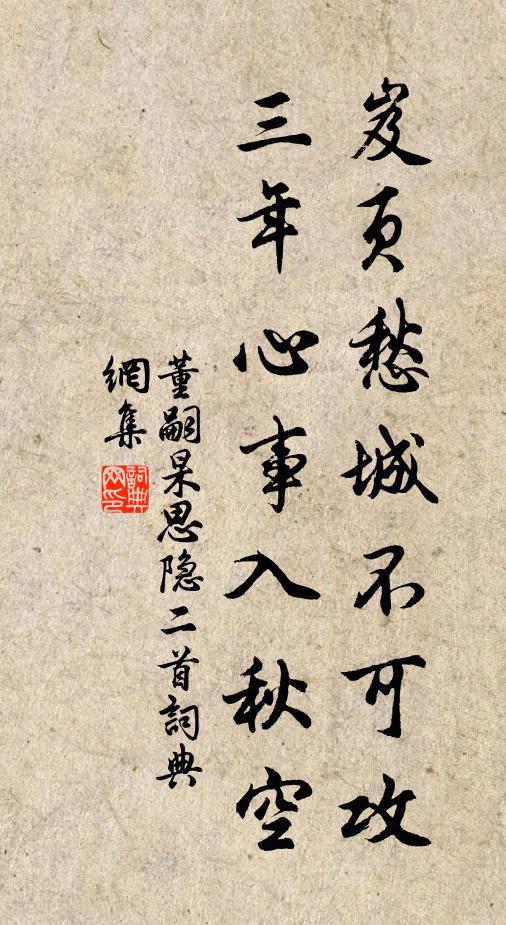 岌页愁城不可攻
三年心事入秋空
董嗣杲思隐二首詞典
網集
詞典
网印